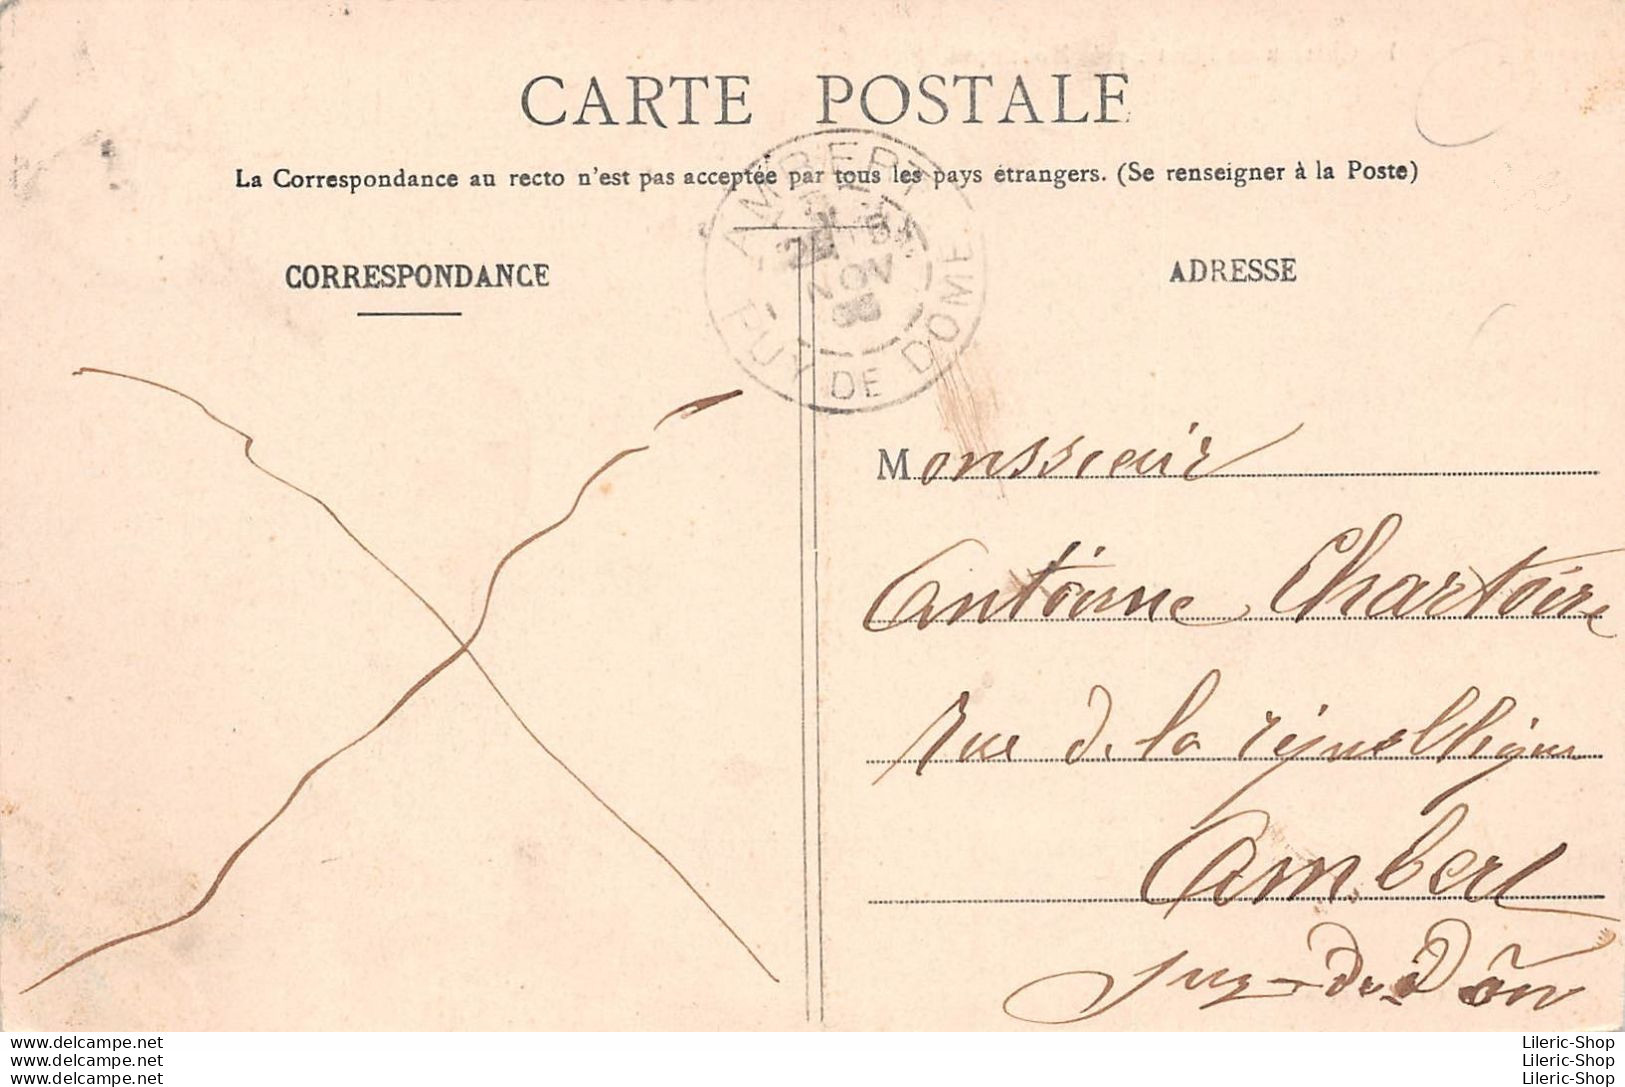 CARTE POSTALE
La Correspondance au recto n'est pas acceptée par tous les pays étrangers. (Se renseigner à la Poste)
AMBERT
NOV
PUY DE DOME
CORRESPONDANCE
ADRESSE
Monssieur
Antoinne Chartoire
Rue de la république
Ambert
Puy-De-Dôm
www.delcampe.net
www.delcampe.net
www.delcampe.net
Lileric-Shop
Lileric-Shop
Lileric-Shop